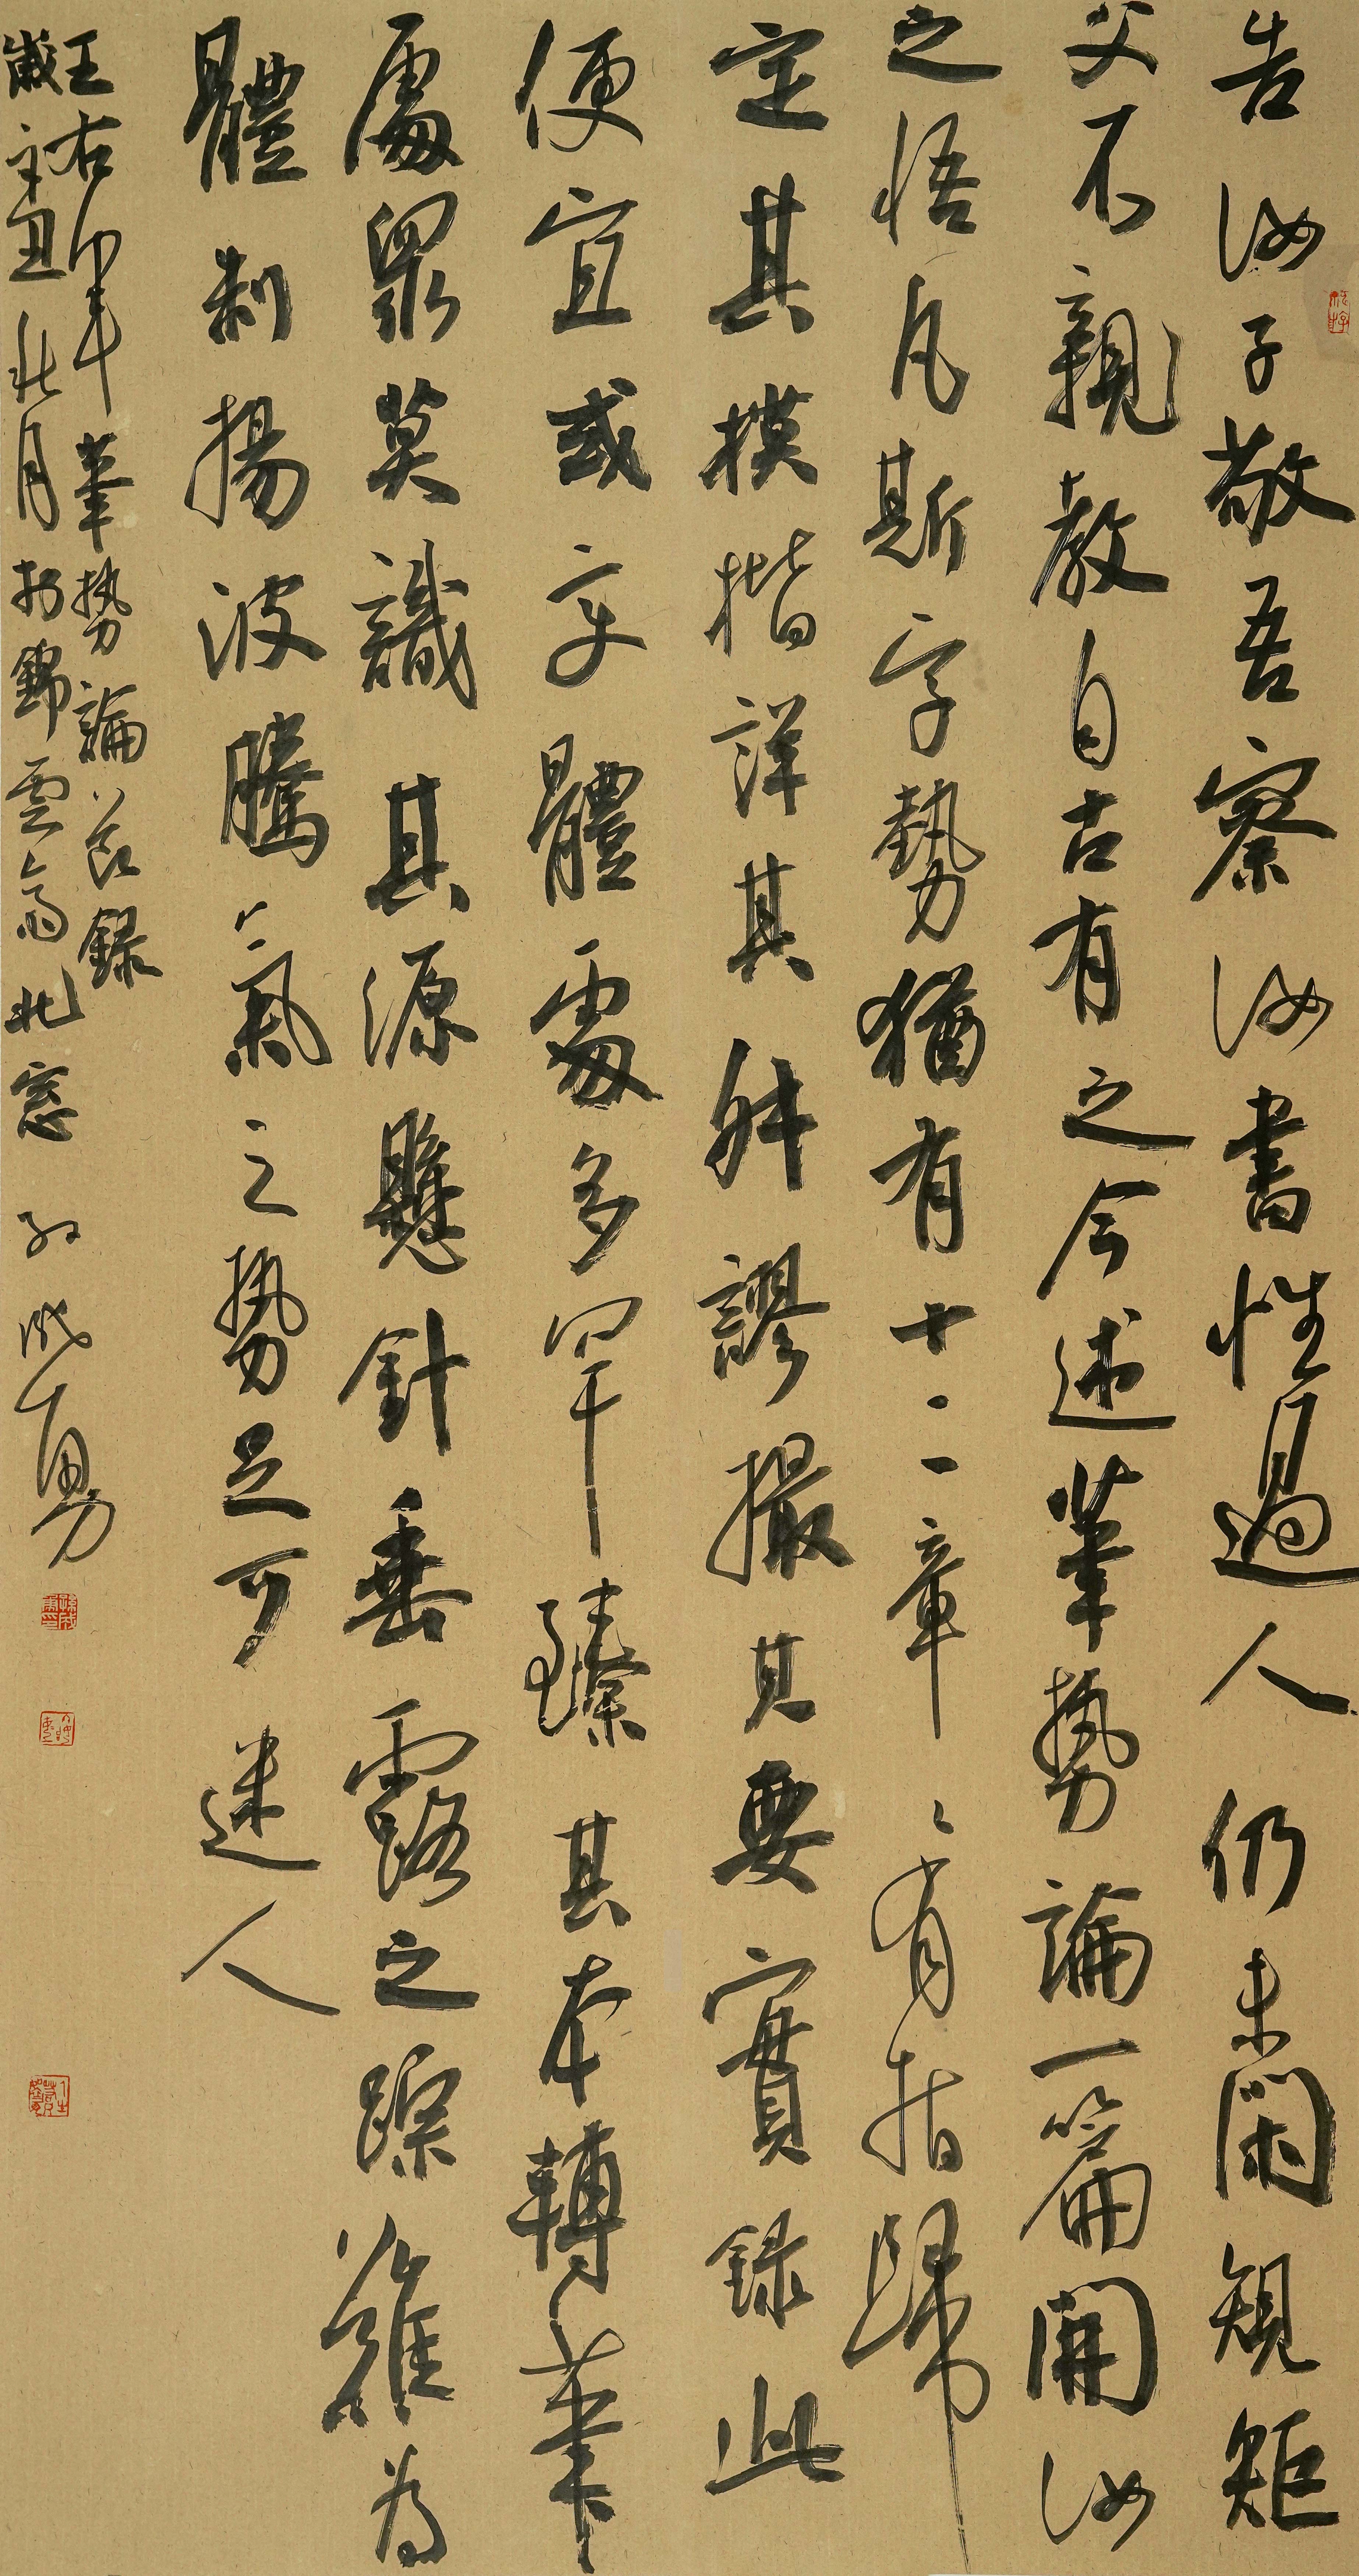 告汝子敬吾察汝書性過人仍未閑規矩
父不親教自古有之今述筆勢論一篇開汝
之悟凡斯字勢猶有十二章章有指歸
定其模楷詳其舛謬撮其要實錄此
便宜或變體處多罕臻其本轉筆
處眾莫識其源懸針垂露之蹤難為
體制揚波騰氣之勢足可迷人
王右軍筆勢論節錄
歲辛丑秋月於錦雲齋北窗 孫成勇